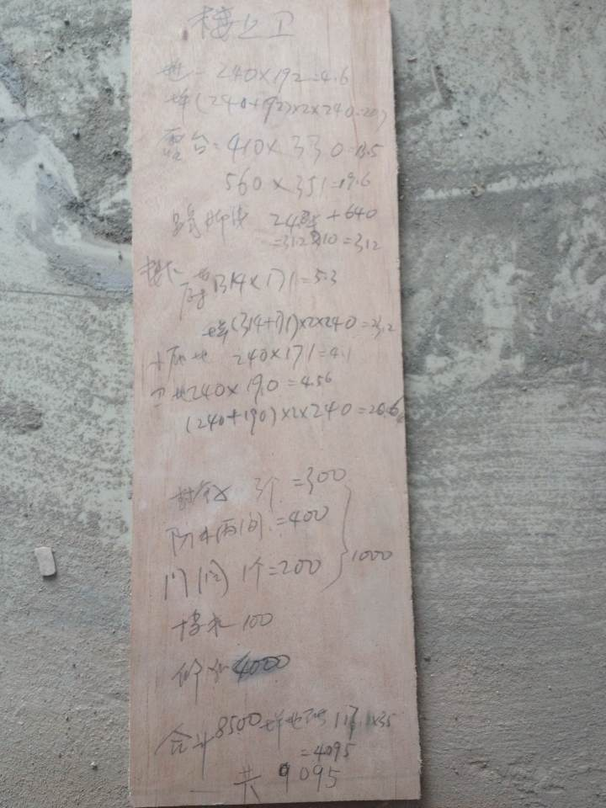 楼上卫
地 240×192=4.6
墙(240+192)×2×240=20.7
露台 410×330=13.5
560×351=19.6
踢脚线 +640
=312×10=312
楼下
314×171=5.3
墙(314+171)×2×240=23.2
地 240×171=4.1
卫地240×190=4.56
(240+190)×2×240=20.6
3个=300
防水两间=400
门 1个=200
1000
100
4000
合计8500 117.1×35
=4095
共 9095